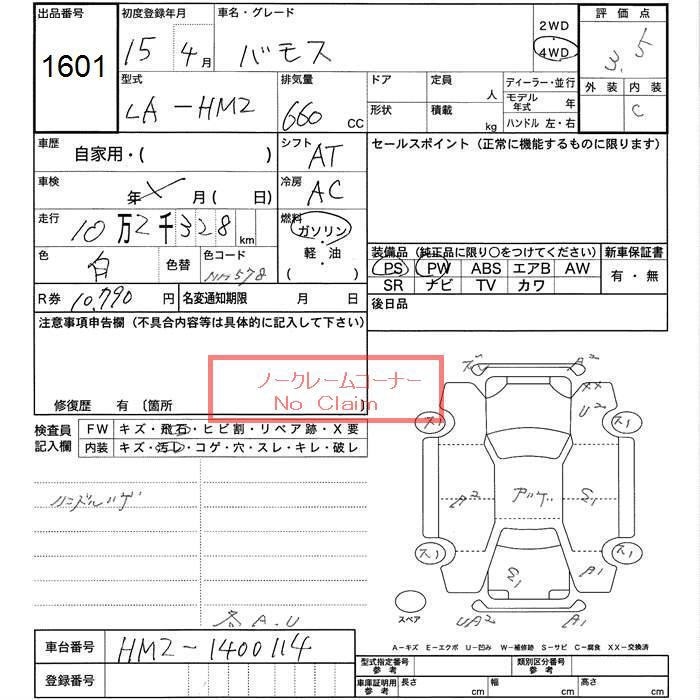 出品番号
1601
初度登録年月
15 4月
車名・グレード
バモス
2WD
4WD
評価点
3.5
外装 内装
C
型式
LA-HM2
排気量
660 CC
ドア
形状
定員 人
積載 kg
ディーラー・並行
モデル年式 年
ハンドル 左・右
車歴
自家用・( )
シフト
AT
セールスポイント(正常に機能するものに限ります)
車検
年 月( 日)
冷房
AC
走行
10万2千328km
燃料
ガソリン・軽油
( )
色
白
色替
色コード
NH578
装備品(純正品に限り○をつけてください)
PS PW ABS エアB AW
SR ナビ TV カワ
新車保証書
有・無
R券 10,790円
名変通知期限 月 日
後日品
注意事項申告欄(不具合内容等は具体的に記入して下さい)
ノークレームコーナー
No Claim
修復歴 有〔箇所
検査員記入欄
FW キズ・飛石・ヒビ割・リペア跡・X要
内装 キズ・汚レ・コゲ・穴・スレ・キレ・破レ
ハンドルハゲ
各A.U
A2
XX
U2
ス1
ス1
A2
アツゲ
S1
ス1
ス1
S1
A1
UA2
A1
スペア
A-キズ E-エクボ U-凹み W-補修跡 S-サビ C-腐食 XX-交換済
車台番号
HM2-1400114
登録番号
型式指定番号 参考
類別区分番号 参考
車庫証明用 参考
長さ cm
幅 cm
高さ cm